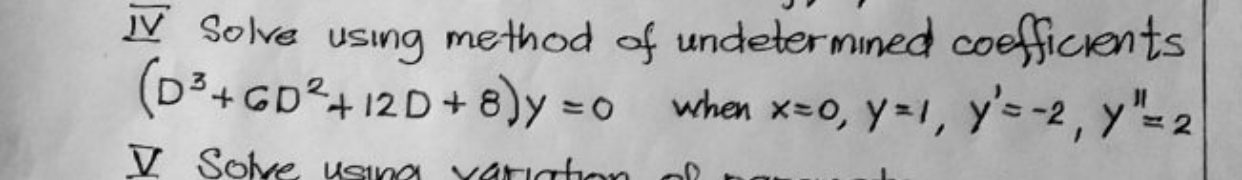 IV Solve using method of undetermined coefficients
(D³+6D²+12D+8)y=0 when x=0, y=1, y'=-2, y"=2
V Solve using variation of